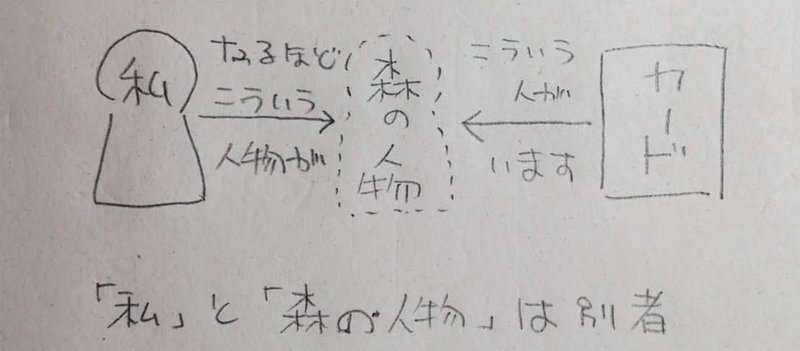 私
なるほど
こういう
人物が
森の人物
こういう
人が
います
カード
「私」と「森の人物」は別者